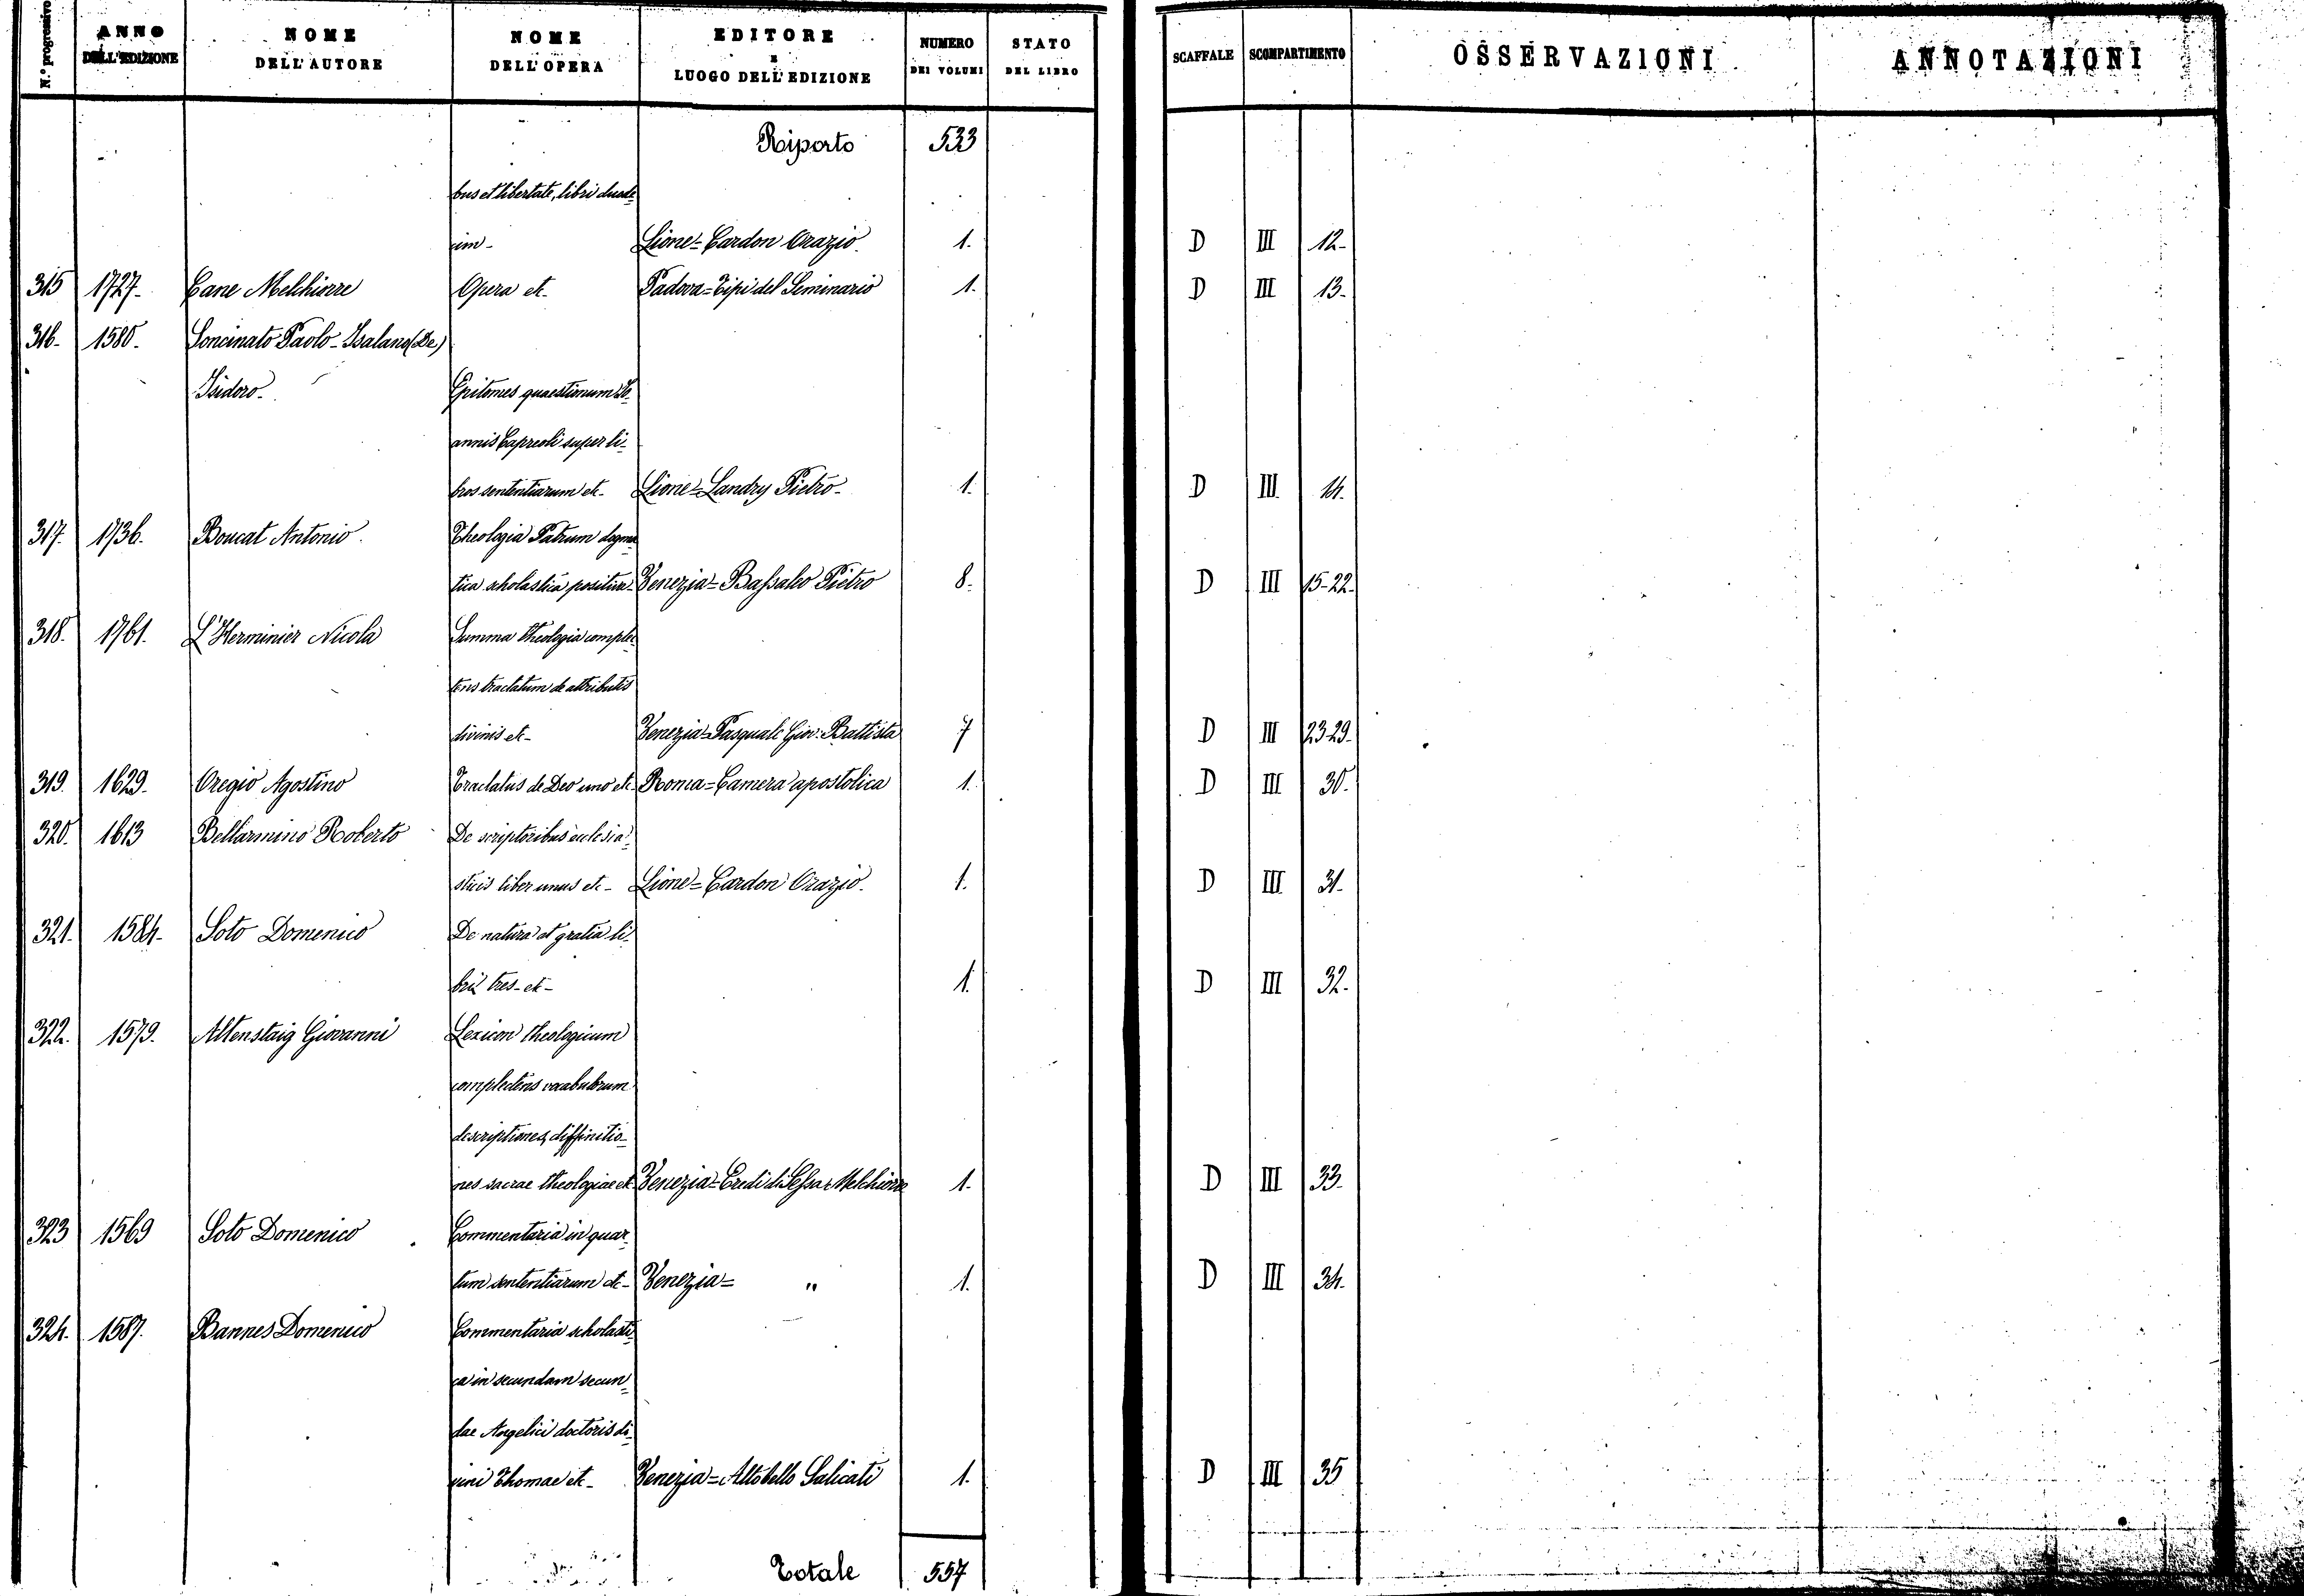 N.° progressivo ANNO DELL'EDIZIONE NOME DELL'AUTORE NOME DELL'OPERA EDITORE E LUOGO DELL'EDIZIONE NUMERO DEI VOLUMI STATO DEL LIBRO SCAFFALE SCOMPARTIMENTO OSSERVAZIONI ANNOTAZIONI
Riporto 533
bus et libertate, libri duode-
cim- Lione=Cardon Orazio. 1. D III 12-
315 1727- Cane Melchiorre Opera et- Padova=Tipi del Seminario 1. D III 13-
316- 1580- Soncinato Paolo-Isalano (De)
Isidoro- Epitomes quaestionum Io-
annis Capreoli super li-
bros sententiarum et- Lione=Landry Pietro- 1. D III 14.
317. 1736. Boucat Antonio. Theologia Patrum dogma-
tica scholastica positiva- Venezia=Bassaleo Pietro 8. D III 15-22-
318. 1761. L'Herminier Nicola Summa theologia complec-
tens tractatum de attributis
divinis et- Venezia=Pasquale Giov: Battista 7 D III 23-29-
319. 1629. Oregio Agostino Tractatus de Deo uno et- Roma=Camera apostolica 1. D III 30.
320. 1613 Bellarmino Roberto De scriptoribus ecclesia-
sticis liber unus et- Lione=Cardon Orazio. 1. D III 31.
321. 1584- Soto Domenico De natura et gratia li-
bri tres-et- 1. D III 32-
322. 1579. Altenstaig Giovanni Lexicon theologicum
complectens vocabulorum
descriptiones, diffinitio-
nes sacrae theologiae et- Venezia=Eredi di Sessa Melchiorre 1. D III 33-
323 1569 Soto Domenico Commentaria in quar-
tum sententiarum et- Venezia= " 1. D III 34.
324. 1587. Bannes Domenico Commentaria scholasti-
ca in secundam secun-
dae Angelici doctoris di-
vini Thomae et- Venezia=Altobello Salicati 1. D III 35
Totale 557